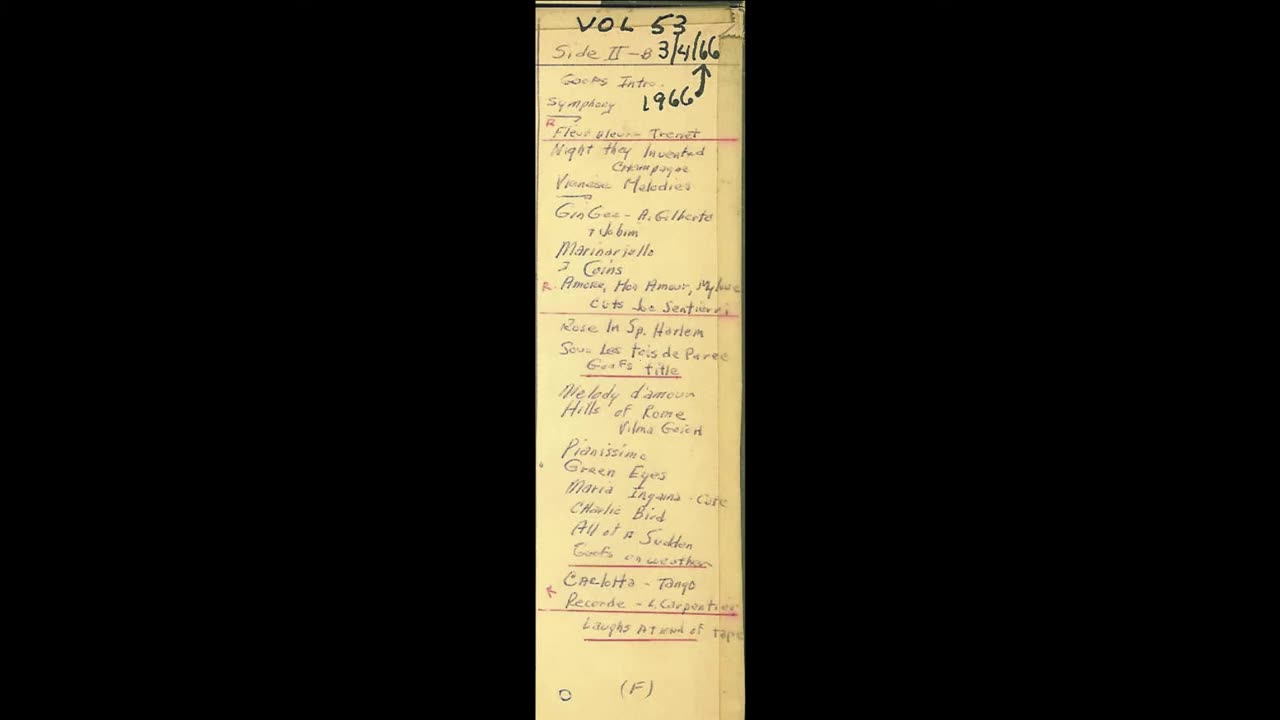 VOL 53
Side II-B 3/4/66
Goofs Intro.
1966
Symphony
R
Fleur Bleue - Trenet
Night they Invented
Champagne
Vienese Melodies
Gin Gee - A. Gilberto
+ Jobim
Marinariello
3 Coins
R. Amore, Mon Amour, My love
Cuts Joe Sentieri
Rose In Sp. Harlem
Sous Les tois de Paree
Goofs title
Melody d'amour
Hills of Rome
Vilma Goich
Pianissimo
Green Eyes
Maria - Cuts
Charlie Bird
All of A Sudden
Goofs on weather
Carlotta - Tango
R
Recorde - L. Carpentier
Laughs AT end of Tape
(F)